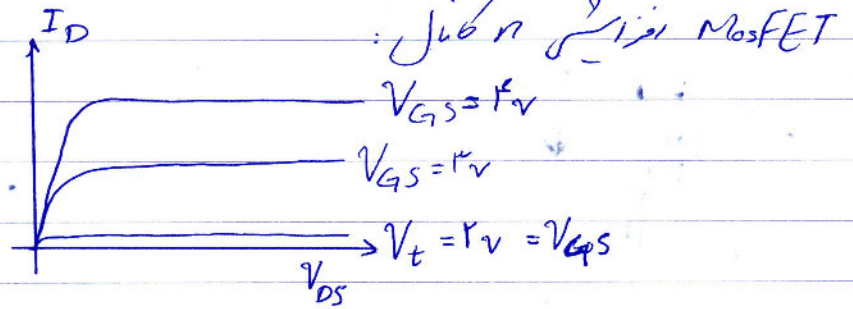 MosFET افزایشی n کانال :
I_D
V_GS = ۴v
V_GS = ۳v
V_t = ۲v = V_GS
V_DS